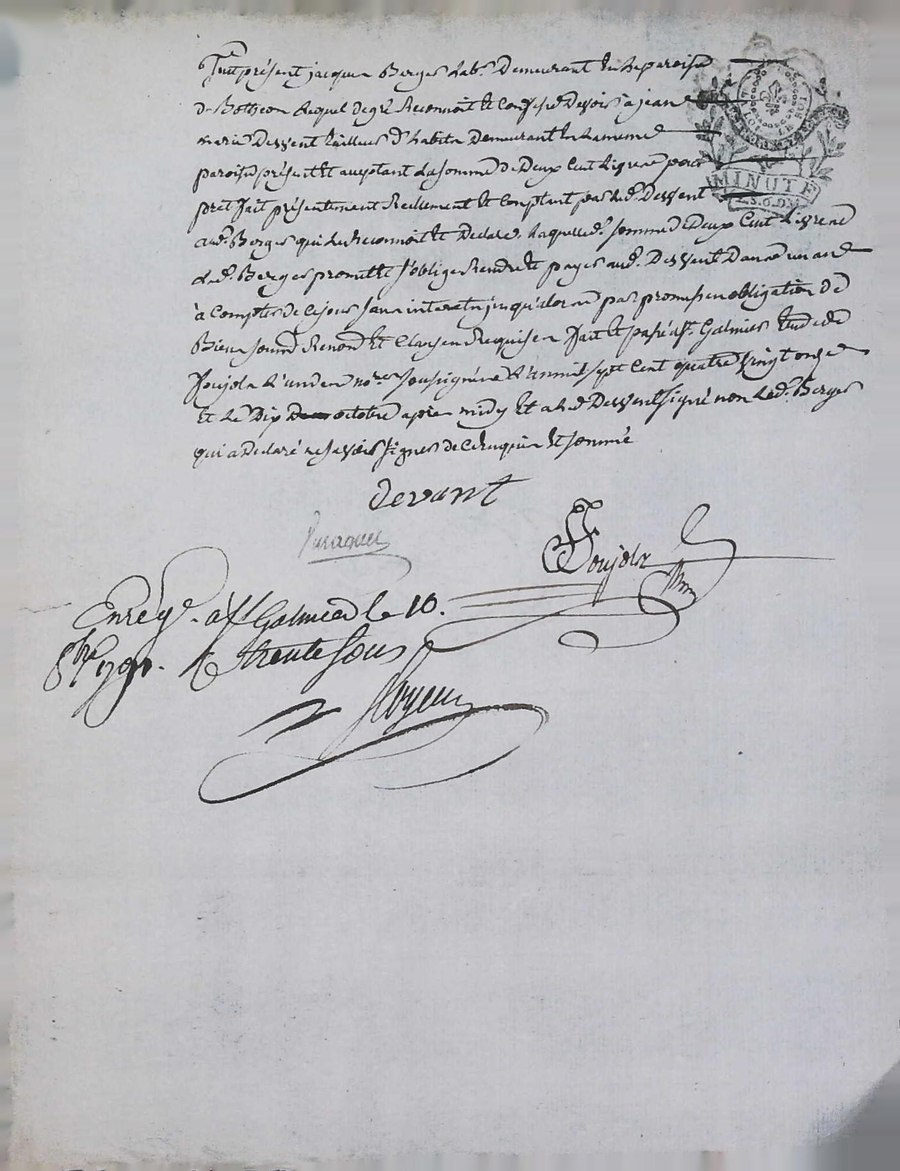 Fut présent jacques Berges lab.r Demeurant En la paroisse
de Botheon Lequel de gré Reconnoit Et Confesse Devoir a jean
marie Devvent tailleur d'habits Demeurant En la meme
paroisse présent Et acceptant La somme de Deux Cent Livres pour
prêt fait présentement Reellement Et Comptant par led. Devvent
aud. Berges qui Le Reconnoit Et Declare, Laquelle d. somme de Deux Cent Livres
Led. Berges promet Et s'oblige Rendre Et payer aud. Devvent Dans un an
à Compter de Ce jour sans interets jusqu'alors par promesse obligation de
Biens soumis Renond. Et Clauses Requises fait Et passé à St. Galmier Etude de
Joujols L'un des no.res soussignés L'an mil sept Cent quatre vingt onze
Et Le Dix octobre apres midy Et a Led. Devvent signé non Led. Berges
qui a Declaré ne savoir signer de Ce Enquis Et sommé
devant
Joujols
Enreg.é a St Galmier le 10.
8bre 1791. R trente sous
MINUTE
2.S.6.D.